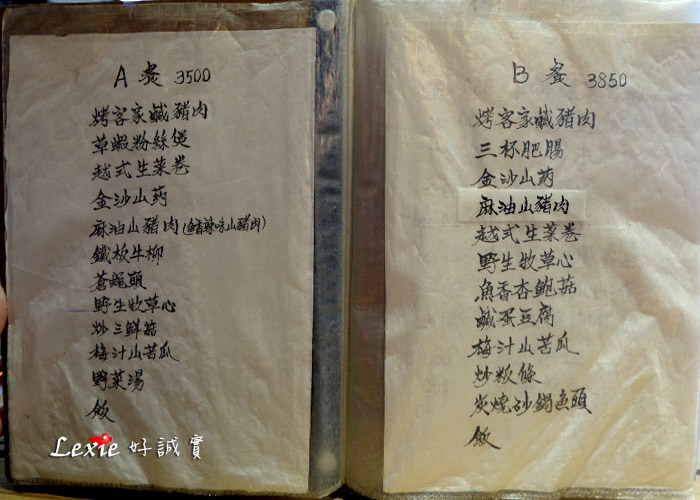 A 餐 3500
烤客家鹹豬肉
草蝦粉絲煲
越式生菜卷
金沙山药
麻油山豬肉(蒜辣味山豬肉)
鐵板牛柳
蒼蠅頭
野生牧草心
炒三鮮菇
梅汁山苦瓜
野菜湯
飯
B 餐 3850
烤客家鹹豬肉
三杯肥腸
金沙山药
麻油山豬肉
越式生菜卷
野生牧草心
魚香杏鮑菇
鹹蛋豆腐
梅汁山苦瓜
炒粄條
炭燒砂鍋魚頭
飯
Lexie 好誠實